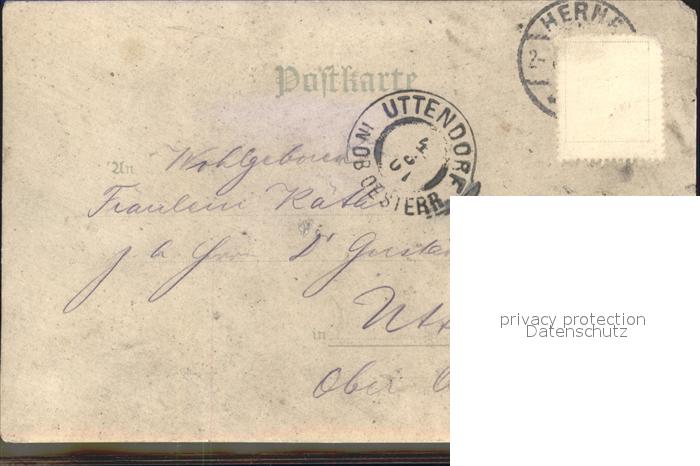 HERNE
2-
Postkarte
UTTENDORF
IN OB OESTERR
An Wohlgeboren
Fräulein Käthe
p. a. Herrn Dr Gustav
in Utt
Ober
privacy protection
Datenschutz